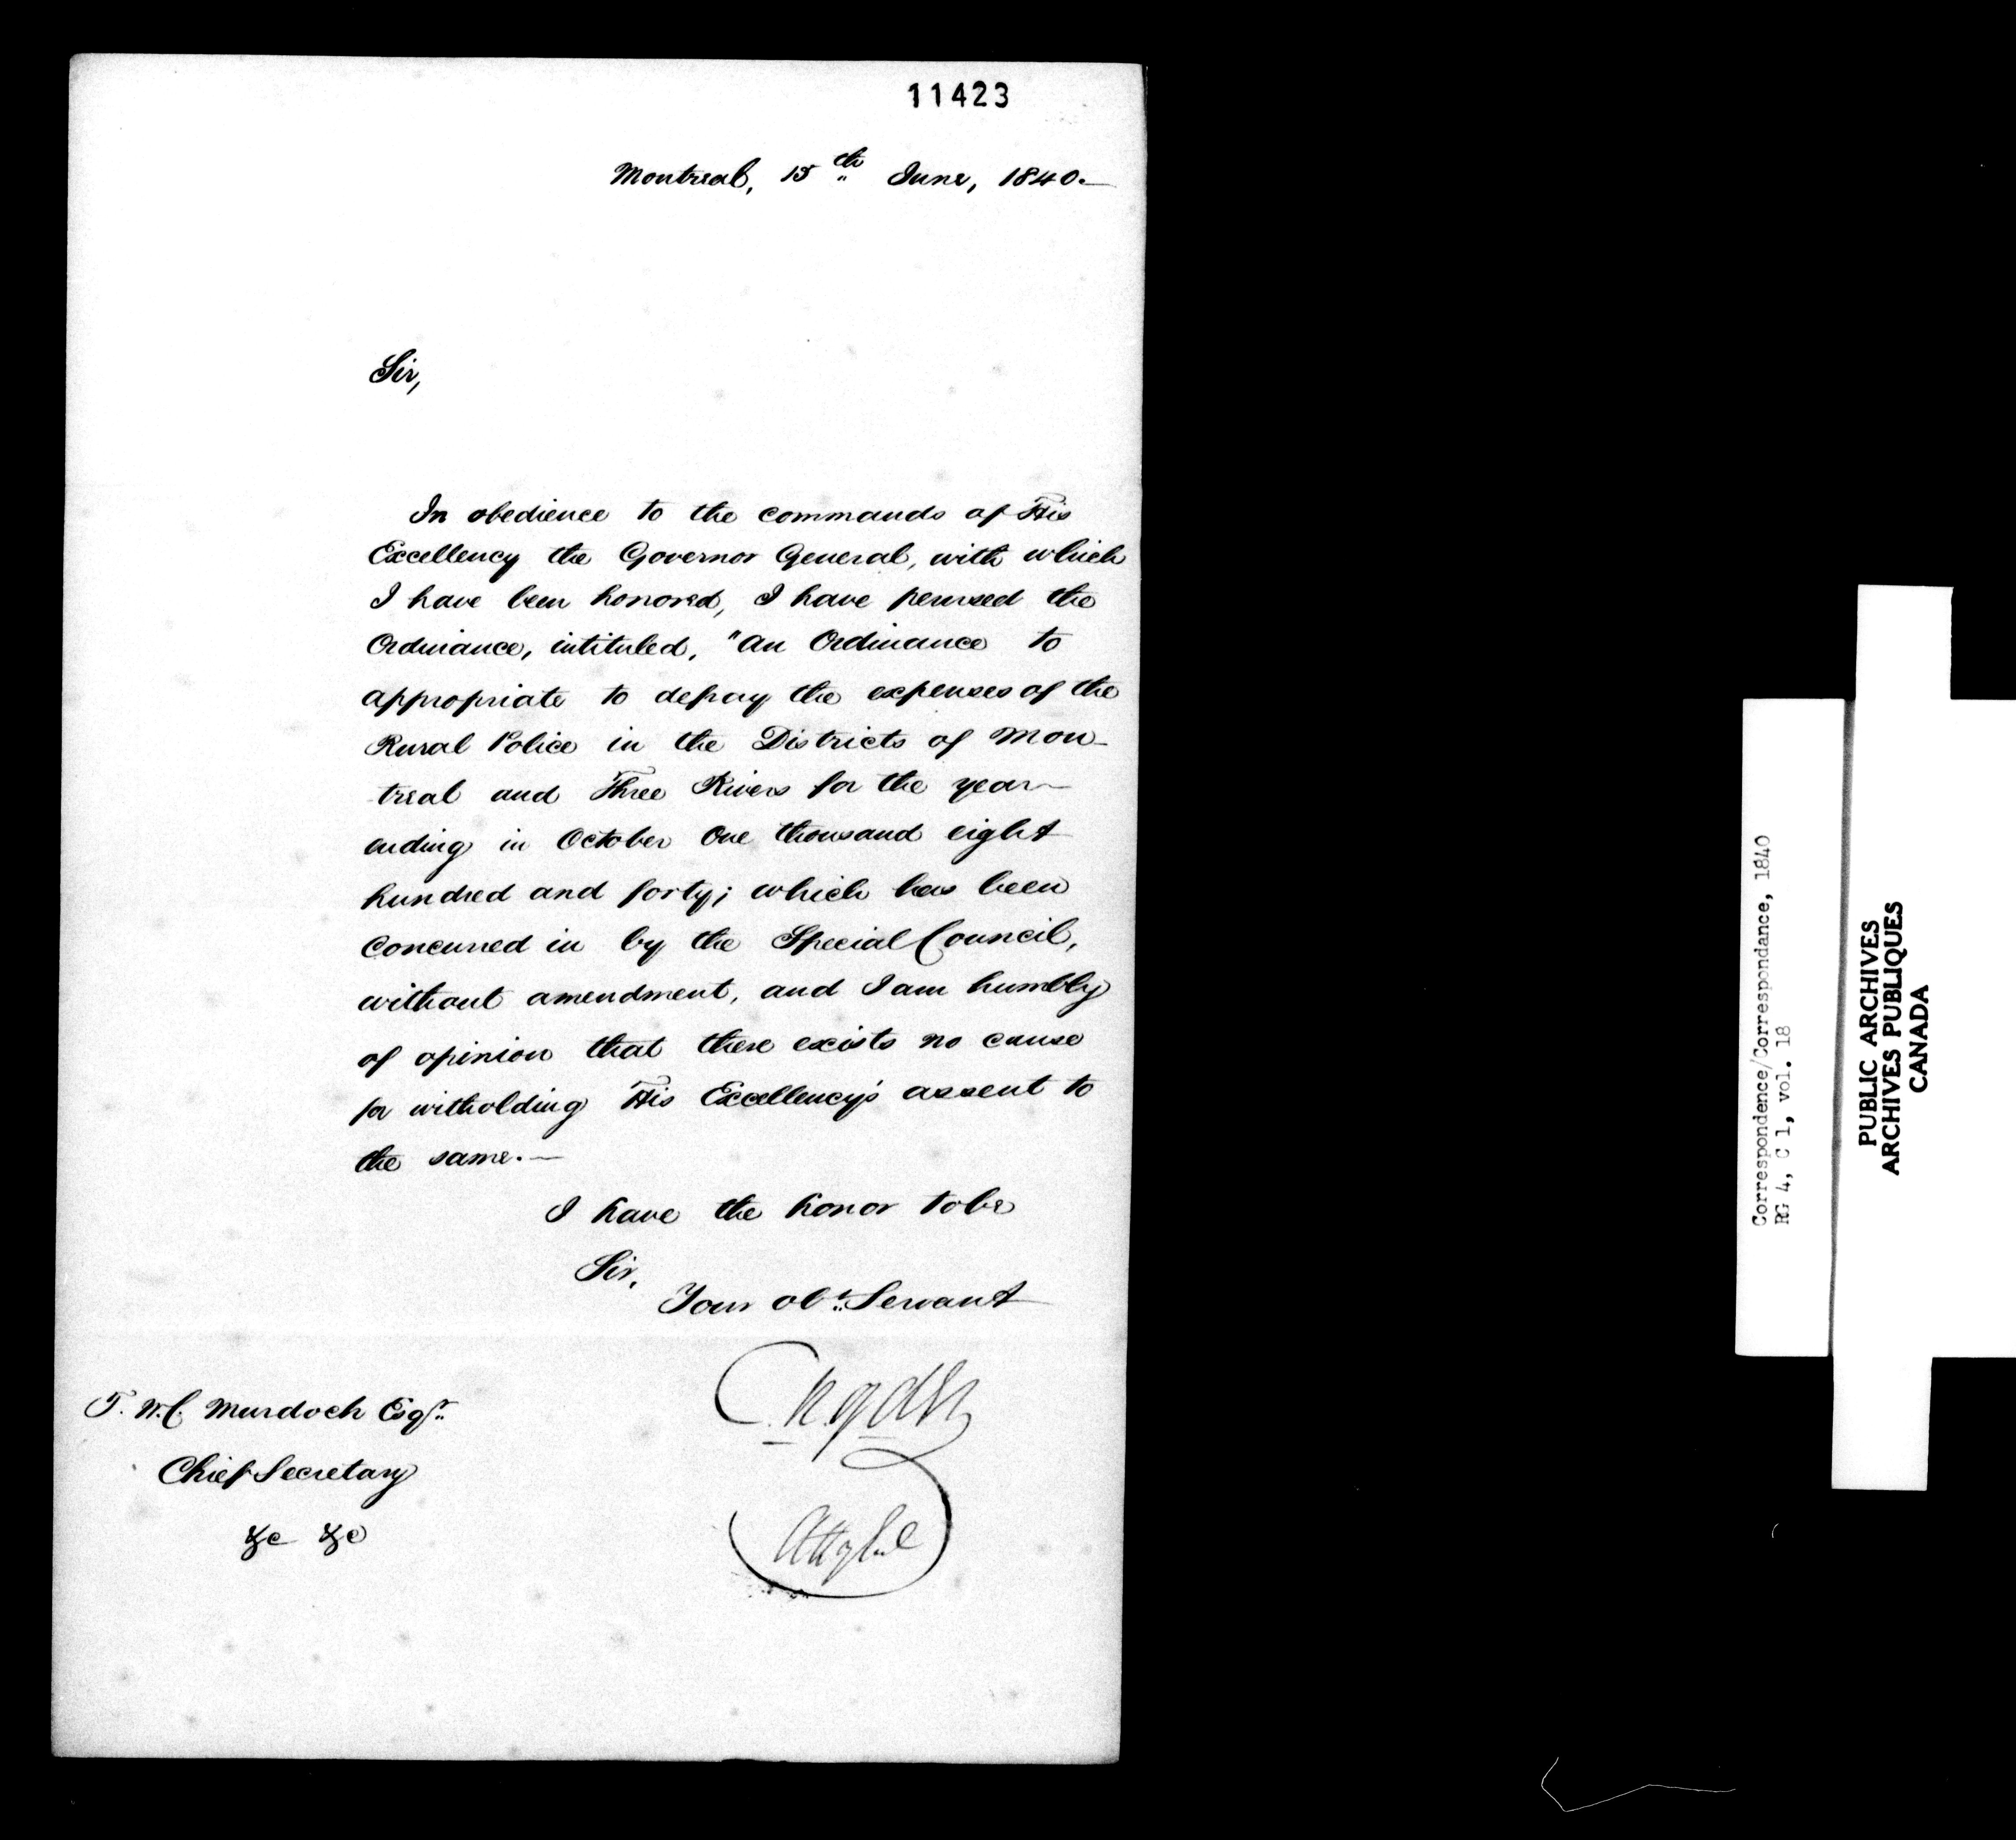 11423
Montreal, 15th June, 1840.—
Sir,
In obedience to the commands of His
Excellency the Governor General, with which
I have been honored, I have perused the
Ordinance, intituled, "An Ordinance to
appropriate to defray the expenses of the
Rural Police in the Districts of Mon-
treal and Three Rivers for the year
ending in October One thousand eight
hundred and forty; which has been
concurred in by the Special Council,
without amendment, and I am humbly
of opinion that there exists no cause
for witholding His Excellency's assent to
the same.—
I have the honor to be
Sir,
Your obt. Servant
C. R. Ogden
Atty Genl
T. W. C. Murdoch Esqr.
Chief Secretary
&c &c
Correspondence/Correspondance, 1840
RG 4, C 1, vol. 18
PUBLIC ARCHIVES
ARCHIVES PUBLIQUES
CANADA